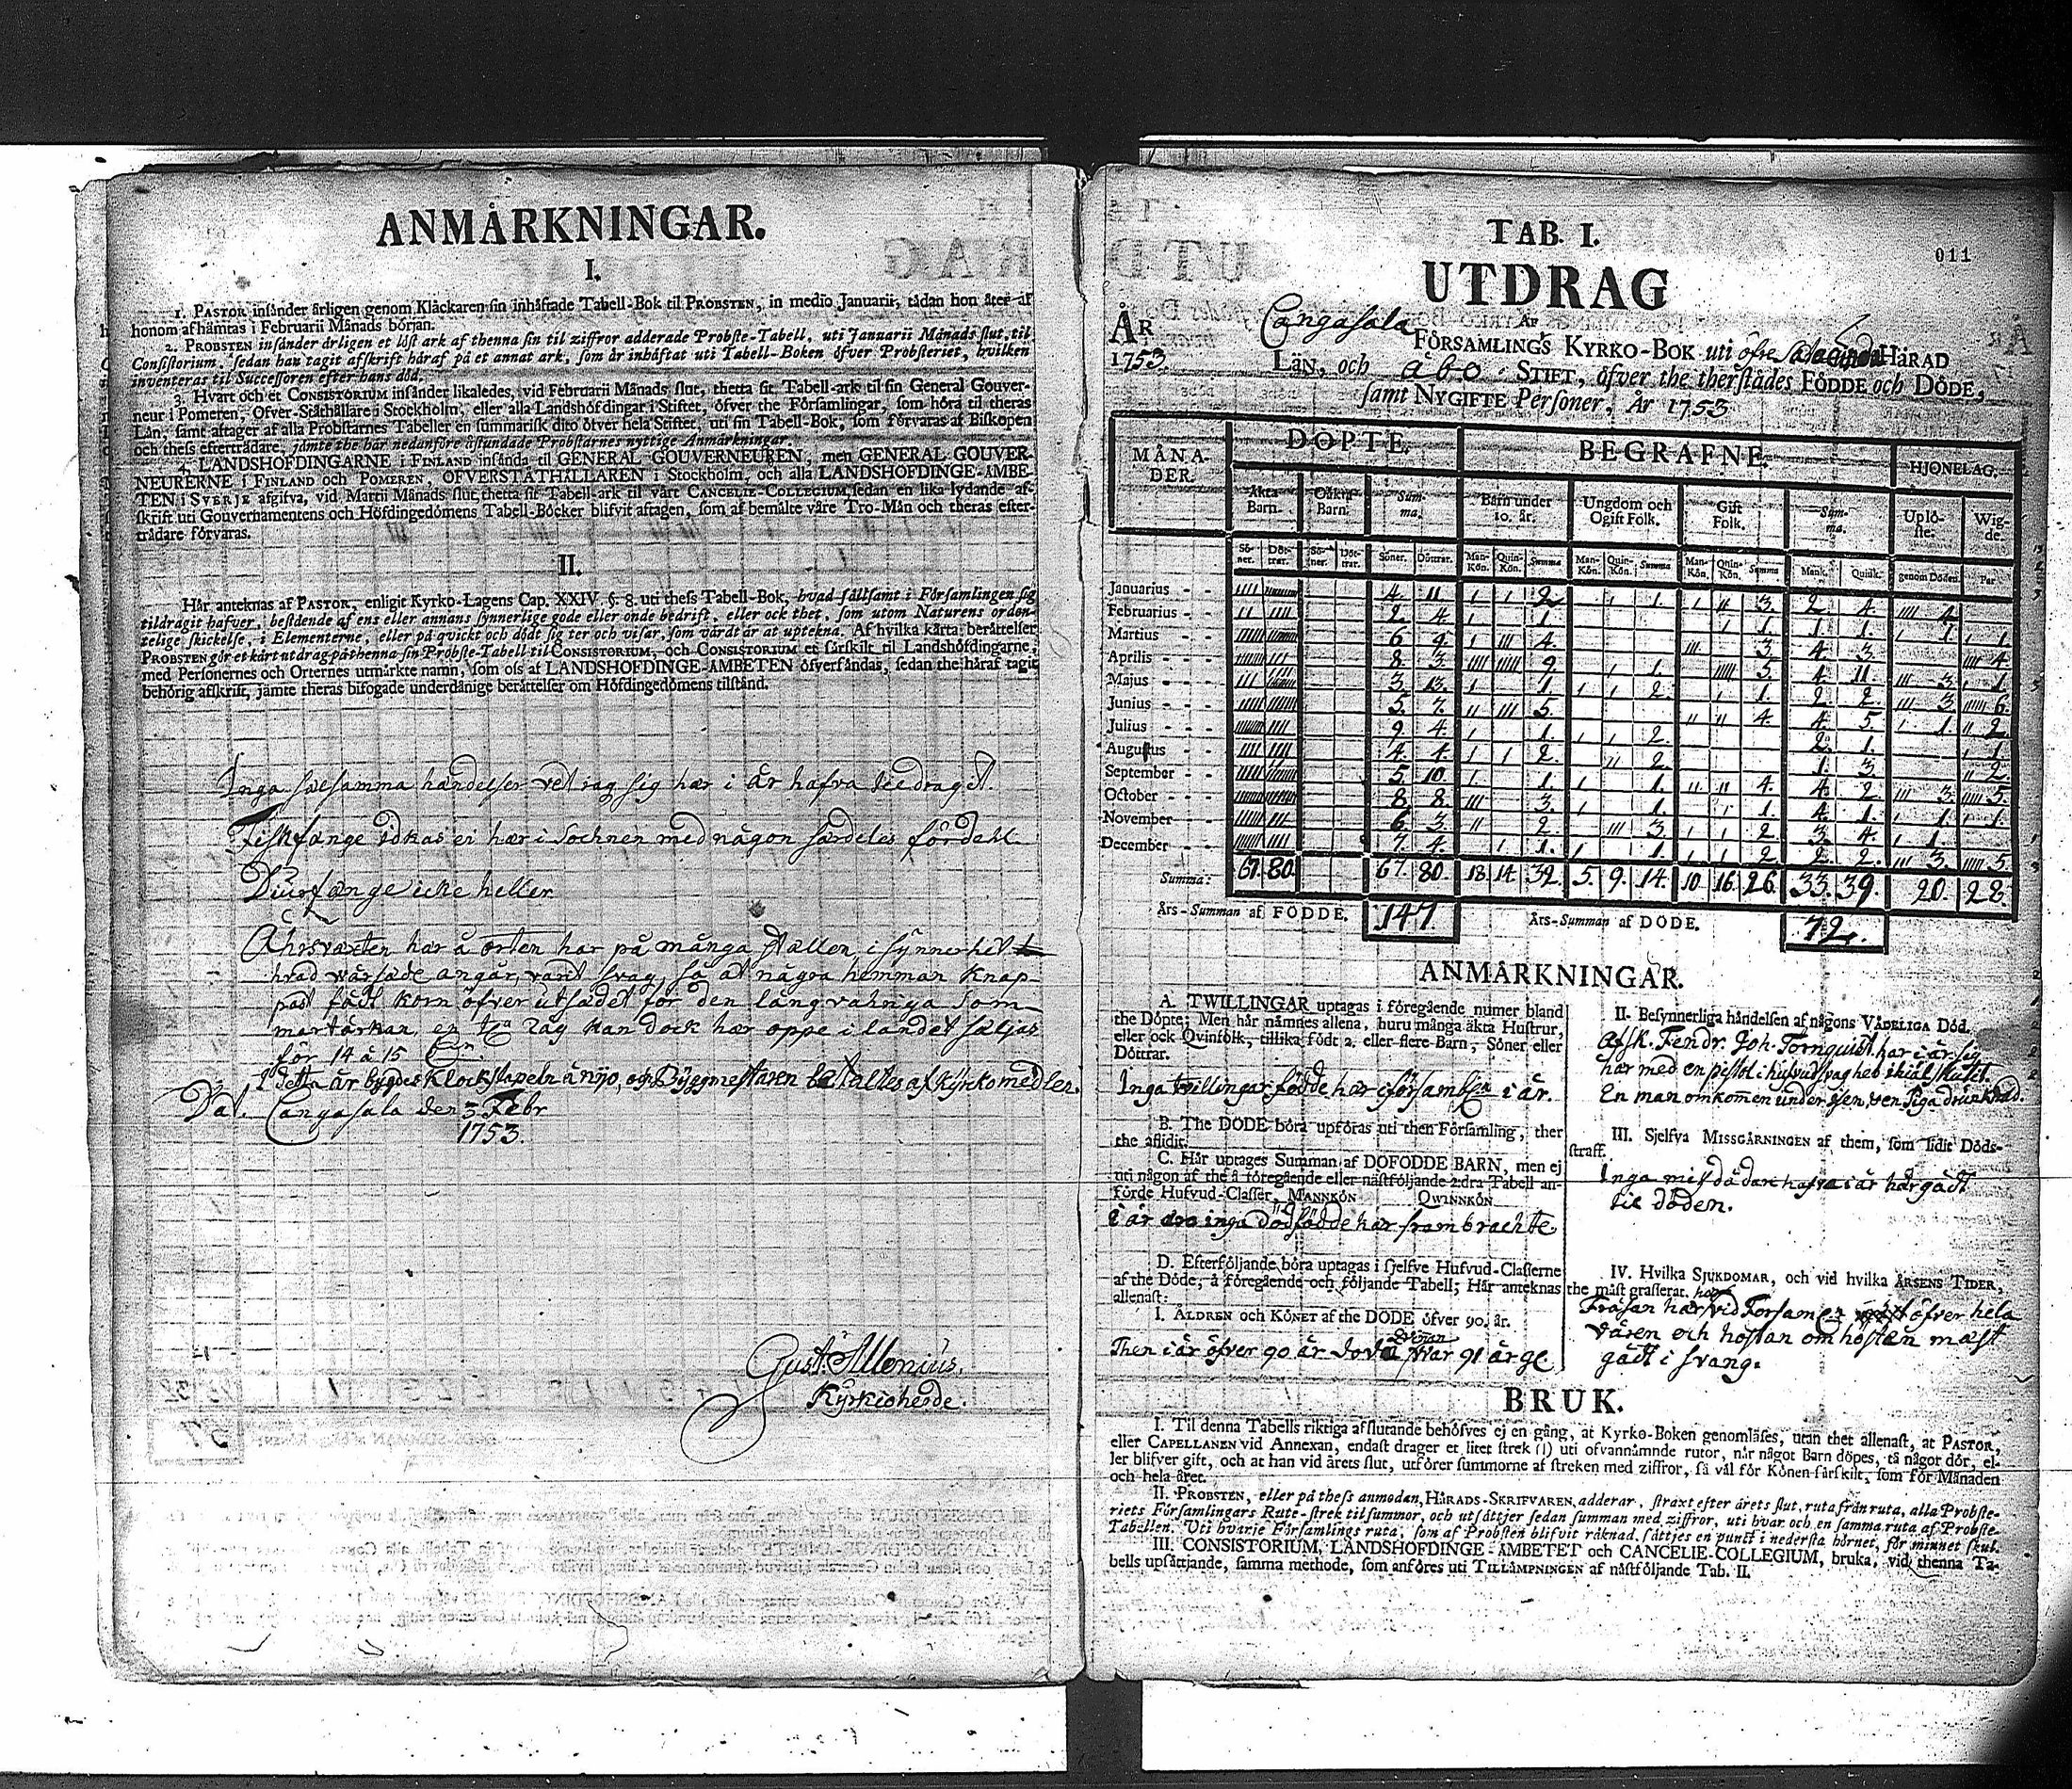 ANMÄRKNINGAR.
I.
1. PASTOR insånder årligen genom Klåckaren sin inhåftade Tabell-Bok til PROBSTEN, in medio Januarii, tådan hon åter af
honom afhåmtas i Februarii Månads början.
2. PROBSTEN insånder årligen et låst ark af thenna sin til ziffror adderade Probste-Tabell, uti Januarii Månads slut, til
Consistorium, sedan han tagit afskrift håraf på et annat ark, som år inhåftat uti Tabell-Boken öfver Probsteriet, hvilken
inventeras til Successoren efter hans död.
3. Hvart och et CONSISTORIUM insånder likaledes, vid Februarii Månads slut, thetta sit Tabell-ark til sin General Gouver-
neur i Pomeren, Öfver-Ståthållare i Stockholm, eller alla Landshöfdingar i Stiftet, öfver the Församlingar, som höra til theras
Lån, samt aftager af alla Probstarnes Tabeller en summarisk dito öfver hela Stiftet, uti sin Tabell-Bok, som förvaras af Biskopen
och thess efterträdare, jämte the hår nedanföre åstundade Probstarnes nyttige Anmårkningar.
4. LANDSHÖFDINGARNE i FINLAND insånda til GENERAL GOUVERNEUREN, men GENERAL GOUVER-
NEURERNE i FINLAND och POMEREN, ÖFVERSTÅTHÅLLAREN i Stockholm, och alla LANDSHÖFDINGE-ÅMBE-
TEN i SVERJE afgifva, vid Martii Månads slut, thetta sit Tabell-ark til vårt CANCELIE-COLLEGIUM, sedan en lika lydande af-
skrift uti Gouvernamentens och Höfdingedömens Tabell-Böcker blifvit aftagen, som af bemålte våre Tro-Mån och theras efter-
trådare förvaras.
II.
Hår anteknas af PASTOR, enligit Kyrko-Lagens Cap. XXIV §. 8. uti thess Tabell-Bok, hvad sållsamt i Församlingen sig
tildragit hafver, bestående af ens eller annans synnerlige gode eller onde bedrift, eller ock thet, som utom Naturens orden-
telige skickelse, i Elementerne, eller på qvickt och dödt sig ter och visar, som vårdt år at uptekna. Af hvilka kårta beråttelser
PROBSTEN gör et kårt utdrag på thenna sin Probste-Tabell til CONSISTORIUM, och CONSISTORIUM et sårskilt til Landshöfdingarne,
med Personernes och Orternes utmårkte namn, som oss af LANDSHÖFDINGE-ÅMBETEN öfversåndas, sedan the håraf tagit
behörig afskrift, jåmte theras bifogade underdånige beråttelser om Höfdingedömens tilstånd.
Inga sälsamma händelser vet jag sig här i år hafva tiedragit.
Fiskfänge idkas ei här i Sochnen med någon särdeles fördehl.
Diurfänge icke heller.
Åhrsväxten här å orten har på många ställen, i synnerhet
hvad vårsäde angår, varit svag, så at några hemman knap-
past fådt korn öfver utsädet för den långvahriga Som-
martårkan, en t:a Råg kan dock här oppe i landet säljas
för 14 à 15
I detta år bygdes Klockstapeln å nyo, och Byggmestaren betaltes af Kyrkomedlen.
Dat. Cangasala den 3 Febr
1753.
Gust: Allenius.
Kyrkioherde.
011
TAB. I.
UTDRAG
AF
ÅR Cangasala FÖRSAMLINGS KYRKO-BOK uti öfre HÅRAD
1753. LÅN, och åbo STIFT, öfver the therstådes FÖDDE och DÖDE,
samt NYGIFTE Personer, År 1753
MÅNA-DER. DÖPTE. BEGRAFNE. HJONELAG.
Åkta Barn. Oåkta Barn. Summa. Barn under 10. år. Ungdom och Ogift Folk. Gift Folk. Summa. Uplöste. Wigde.
Söner. Döttrar. Söner. Döttrar. Söner. Döttrar. Man-Kön. Quin-Kön. Summa Man-Kön. Quin-Kön. Summa Man-Kön. Quin-Kön. Summa Mank. Quink. genom Döden. Par
Januarius 4. 11. 2 1. 3. 2. 4. 4.
Februarius 2. 4. 1. 1 1. 1. 1. 1.
Martius 6 9. 4. 3 4. 3. 4.
Aprilis 8. 3. 9. 1. 5. 4. 11. 3. 1.
Majus 3. 13. 1. 2. 1. 2. 2. 3. 6.
Junius 5. 7. 5. 4. 4. 5. 1. 2.
Julius 9 4. 1. 2. 2. 1. 1.
Augustus 4. 4. 2. 2. 1. 3. 2.
September 5. 10. 1. 1. 4. 4. 2. 3. 5.
October 8. 8. 3. 1. 1. 4. 1. 1. 1.
November 6. 3. 2. 3 2. 3. 4. 1.
December 7. 4. 1. 1. 2 2. 2. 3. 5.
Summa: 67. 80. 67. 80. 18. 14. 32. 5. 9. 14. 10. 16. 26. 33. 39. 20. 28.
Års-Summan af FÖDDE. 147. Års-Summan af DÖDE. 72.
ANMÅRKNINGAR.
A. TWILLINGAR uptagas i föregående numer bland
the Döpte; Men hår nåmnes allena, huru många åkta Hustrur,
eller ock Qvinfolk, tillika födt 2. eller flere Barn, Söner eller
Döttrar.
Inga tvillingar födde här i församl:en i år.
B. The DÖDE böra upföras uti then Församling, ther
the aflidit.
C. Hår uptages Summan af DÖDFÖDDE BARN, men ej
uti någon af the å föregående eller nåstföljande 2:dra Tabell an-
förde Hufvud-Classer, MANNKÖN QWINNKÖN
i år äro inga dödfödde här frambrachte.
D. Efterföljande böra uptagas i sjelfve Hufvud-Classerne
af the Döde, å föregående och följande Tabell; Hår anteknas
allenast:
I. ÅLDREN och KÖNET af the DÖDE öfver 90. år.
Then i år öfver 90 år var 91 år ge
II. Besynnerliga håndelsen af någons VÅDELIGA Död.
Afsk. Fendr. Joh. Tornquist har i år sig
här med en pistol i hufvudsvaghet ihiäl skutit.
En man omkommen under isen, en Piga drunknad.
III. Sjelfva MISSGÅRNINGEN af them, som lidit Döds-
straff.
Inga missdådare hafva i år här gådt
til döden.
IV. Hvilka SJUKDOMAR, och vid hvilka ÅRSENS TIDER,
the måst grasserat.
Fräsan har vid Forsam:en öfver hela
våren och höstan om hösten mäst
gådt i svang.
BRUK.
I. Til denna Tabells riktiga afslutande behöfves ej en gång, at Kyrko-Boken genomlåses, utan thet allenast, at PASTOR,
eller CAPELLANEN vid Annexan, endast drager et litet strek (I) uti ofvannåmnde rutor, når något Barn döpes, få någor dör, el-
ler blifver gift, och at han vid årets slut, utförer summorne af streken med ziffror, så vål för Könen sårskilt, som för Månaden
och hela året.
II. PROBSTEN, eller på thess anmodan, HÅRADS-SKRIFVAREN, adderar, straxt efter årets slut, ruta från ruta, alla Probste-
riets Församlingars Rute-strek til summor, och utsåttjer sedan summan med ziffror, uti hvar och en samma ruta af Probste-
Tabellen. Uti hvarje Församlings ruta, som af Probsten blifvit råknad, såttjes en punct i nedersta hörnet, för minnet skul.
III. CONSISTORIUM, LANDSHÖFDINGE-ÅMBETET och CANCELIE-COLLEGIUM, bruka, vid thenna Ta-
bells upsåttjande, samma methode, som anföres uti TILLÅMPNINGEN af nåstföljande Tab. II.